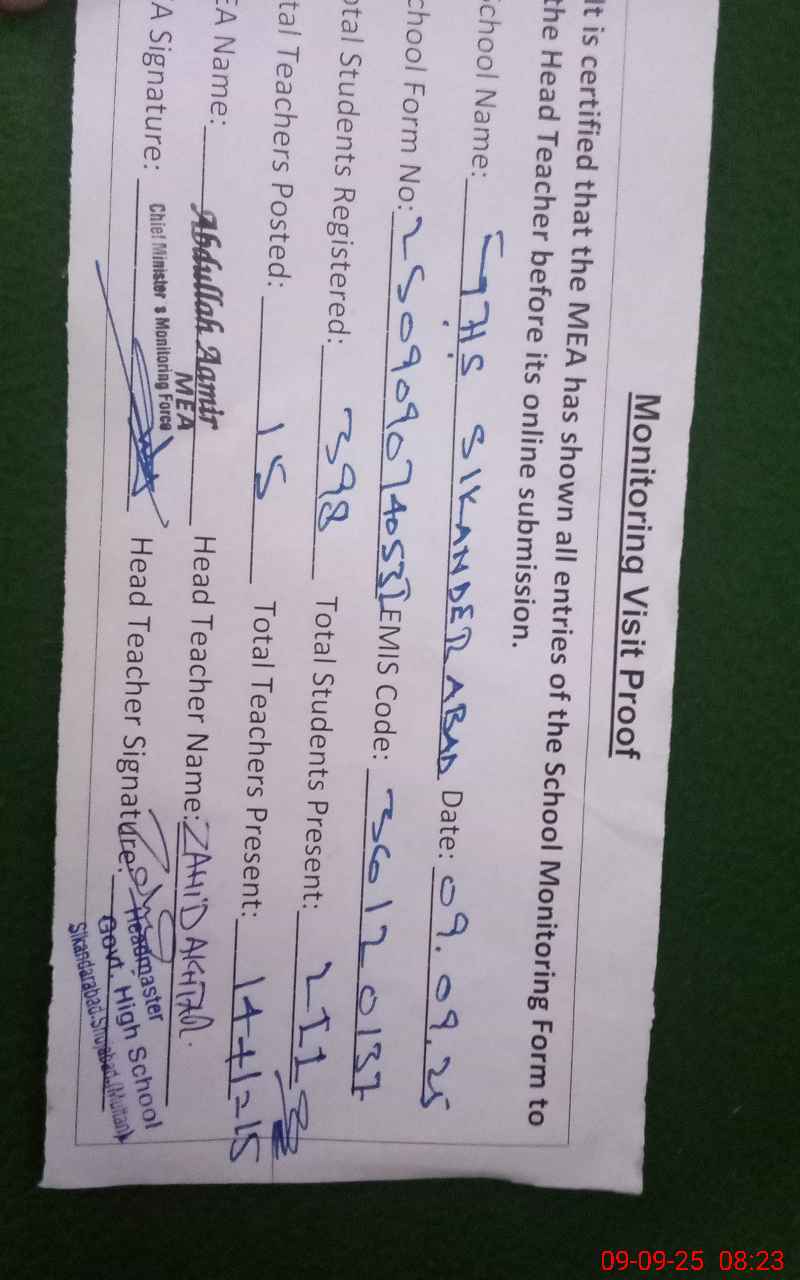 Monitoring Visit Proof
It is certified that the MEA has shown all entries of the School Monitoring Form to
the Head Teacher before its online submission.
School Name: G.H.S SIKANDER ABAD Date: 09.09.25
chool Form No: EMIS Code: 36120137
otal Students Registered: 398 Total Students Present:
tal Teachers Posted: 15 Total Teachers Present: 14+1=15
EA Name: Abdullah Aamir Head Teacher Name: ZAHID AKHTAR.
MEA
A Signature: Chief Minister's Monitoring Force Head Teacher Signature:
Headmaster
Govt. High School
Sikandarabad-Shujabad (Multan)
09-09-25 08:23